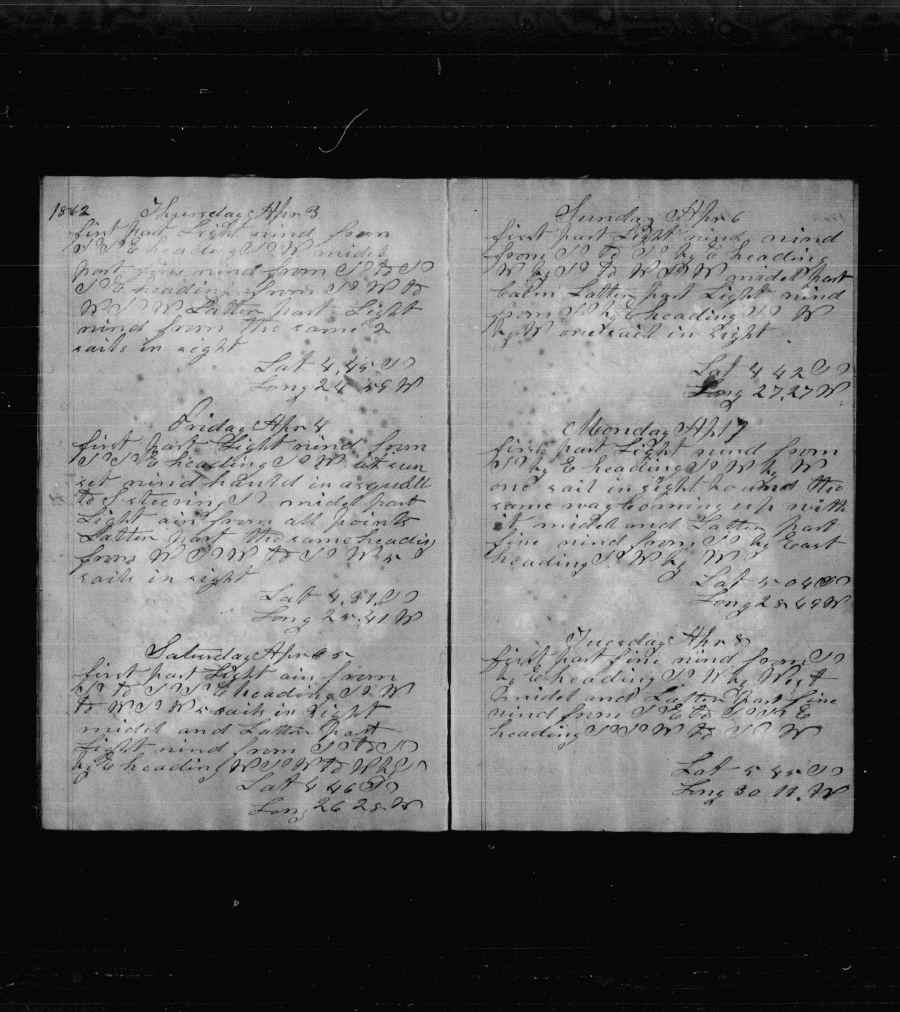 1862 Thursday Apr 3
first part Light wind from
S S E heading S W midel
part fine wind from S to S
S E heading from S W to
W S W Latter part Light
wind from the same 2
sails in sight
Lat 4,45 S
Long 24 59 W
Friday Apr 4
first part Light wind from
S S E heading S W at sun
set wind hauld in a squall
to S stering S midel part
Light air from all points
Latter part the same heading
from W S W to S W 5
sails in sight
Lat 4,31, S
Long 25,41 W
Saturday Apr 5
first part Light air from
S to S S E heading S W
to W S W 5 sails in sight
midel and Latter part
Light wind from S to S
by E heading W S W to W by S
Lat 4 46 S
Long 26 28 W
Sunday Apr 6
first part Light wind wind
from S to S by E heading
W by S to W S W midel part
Calm Latter part Light wind
from S by E heading S W
by W one sail in sight
Lat 4 42 S
Long 27,27 W
Monday Ap 7
first part Light wind from
S by E heading S W by W
one sail in sight bound the
same way Coming up with
it midel and Latter part
fine wind from S by East
heading S. W by W
Lat 5 04 S
Long 28 49 W
Tuesday Apr 8
first part fine wind from S
by E heading S W by West
midel and Latter part fine
wind from S E to S S E
heading S S W to S W
Lat 5 45 S
Long 30 11. W